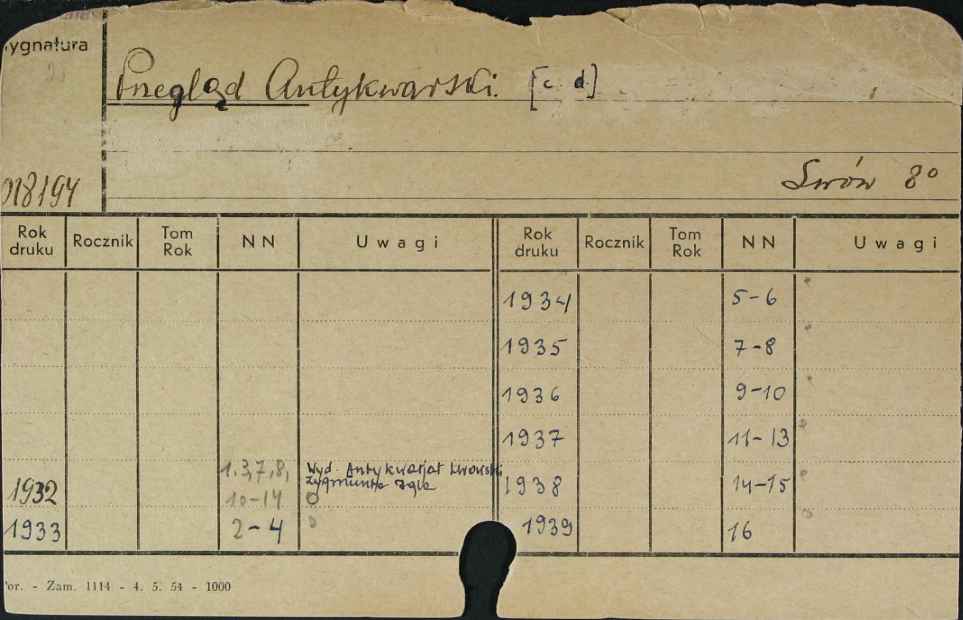 ygnatura
Przegląd Antykwarski. [c. d.]
018194
Lwów 8°
Rok druku Rocznik Tom Rok NN Uwagi Rok druku Rocznik Tom Rok NN Uwagi
1934 5-6
1935 7-8
1936 9-10
1937 11-13
1932 1.3,7,8, 10-14 Wyd. Antykwarjat Lwowski Zygmunta 1938 14-15
1933 2-4 1939 16
or. - Zam. 1114 - 4. 5. 54 - 1000